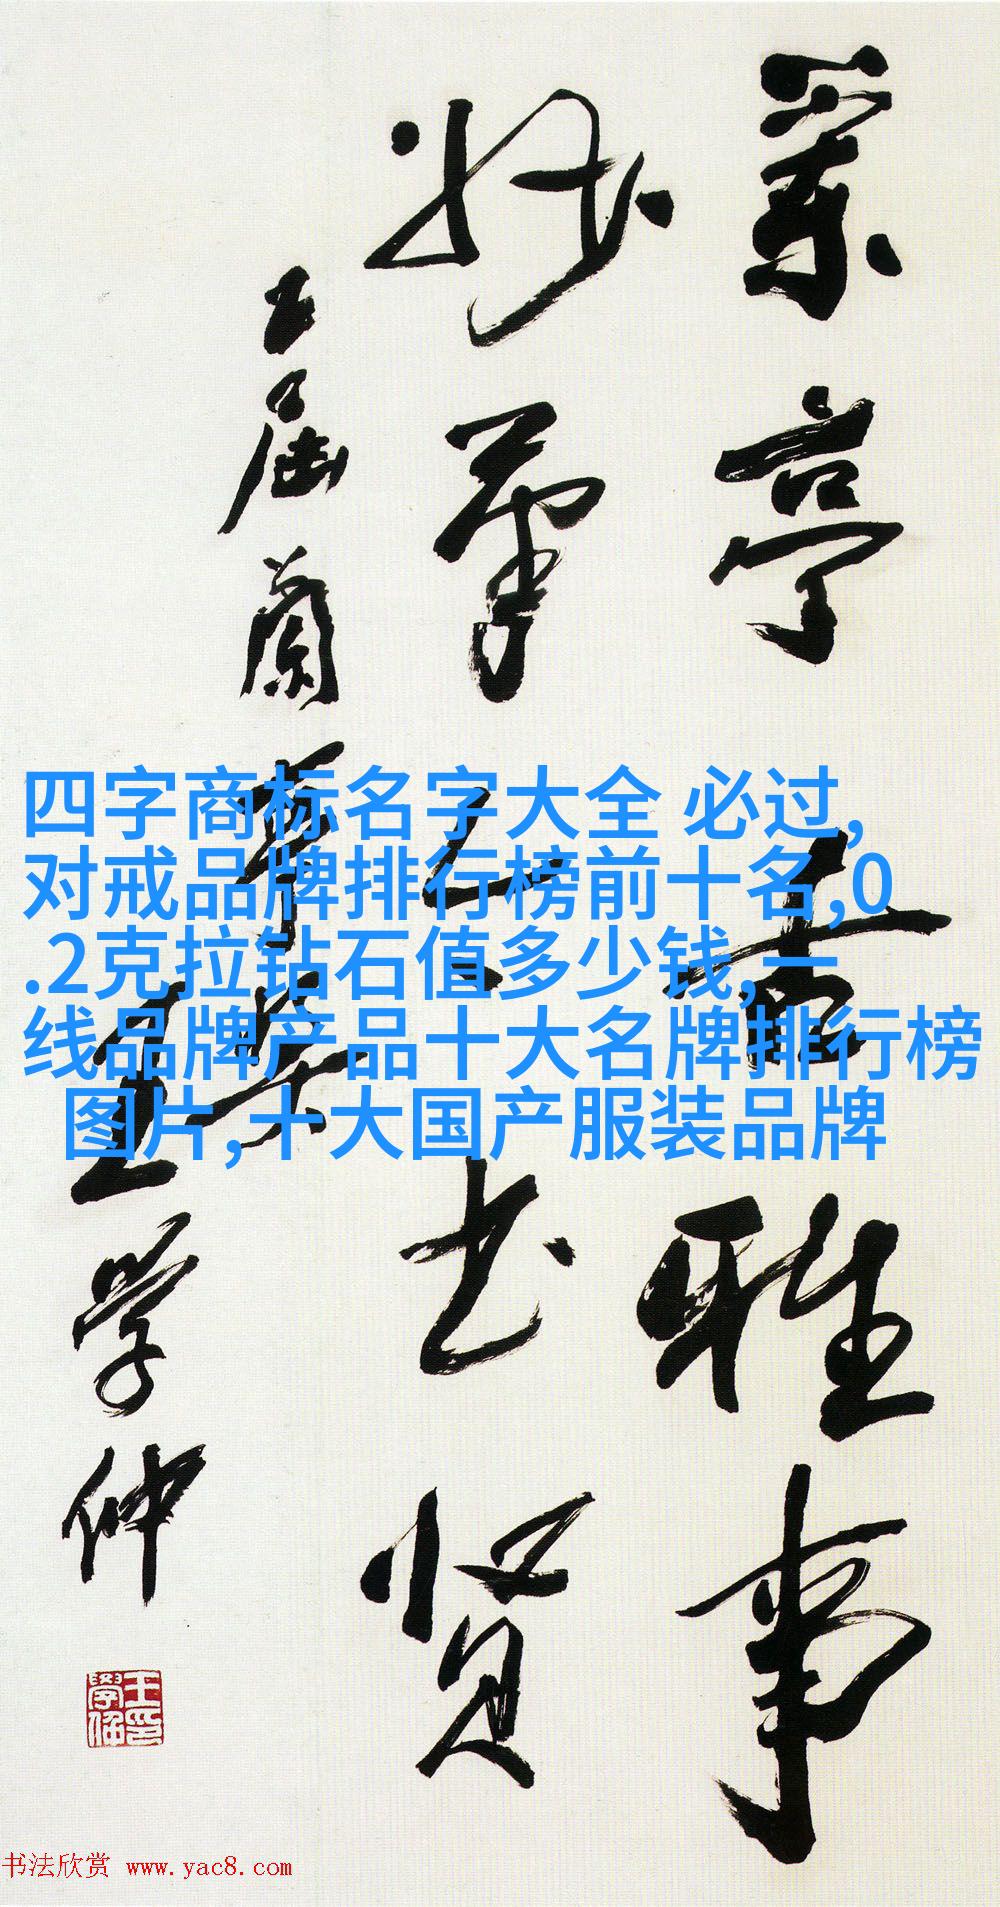 亭書雅事
妙笔书贤
五届蘭亭
王学仲
四字商标名字大全 必过,
对戒品牌排行榜前十名,0
.2克拉钻石值多少钱,一
线品牌产品十大名牌排行榜
图片,十大国产服装品牌
书法欣赏 www.yac8.com